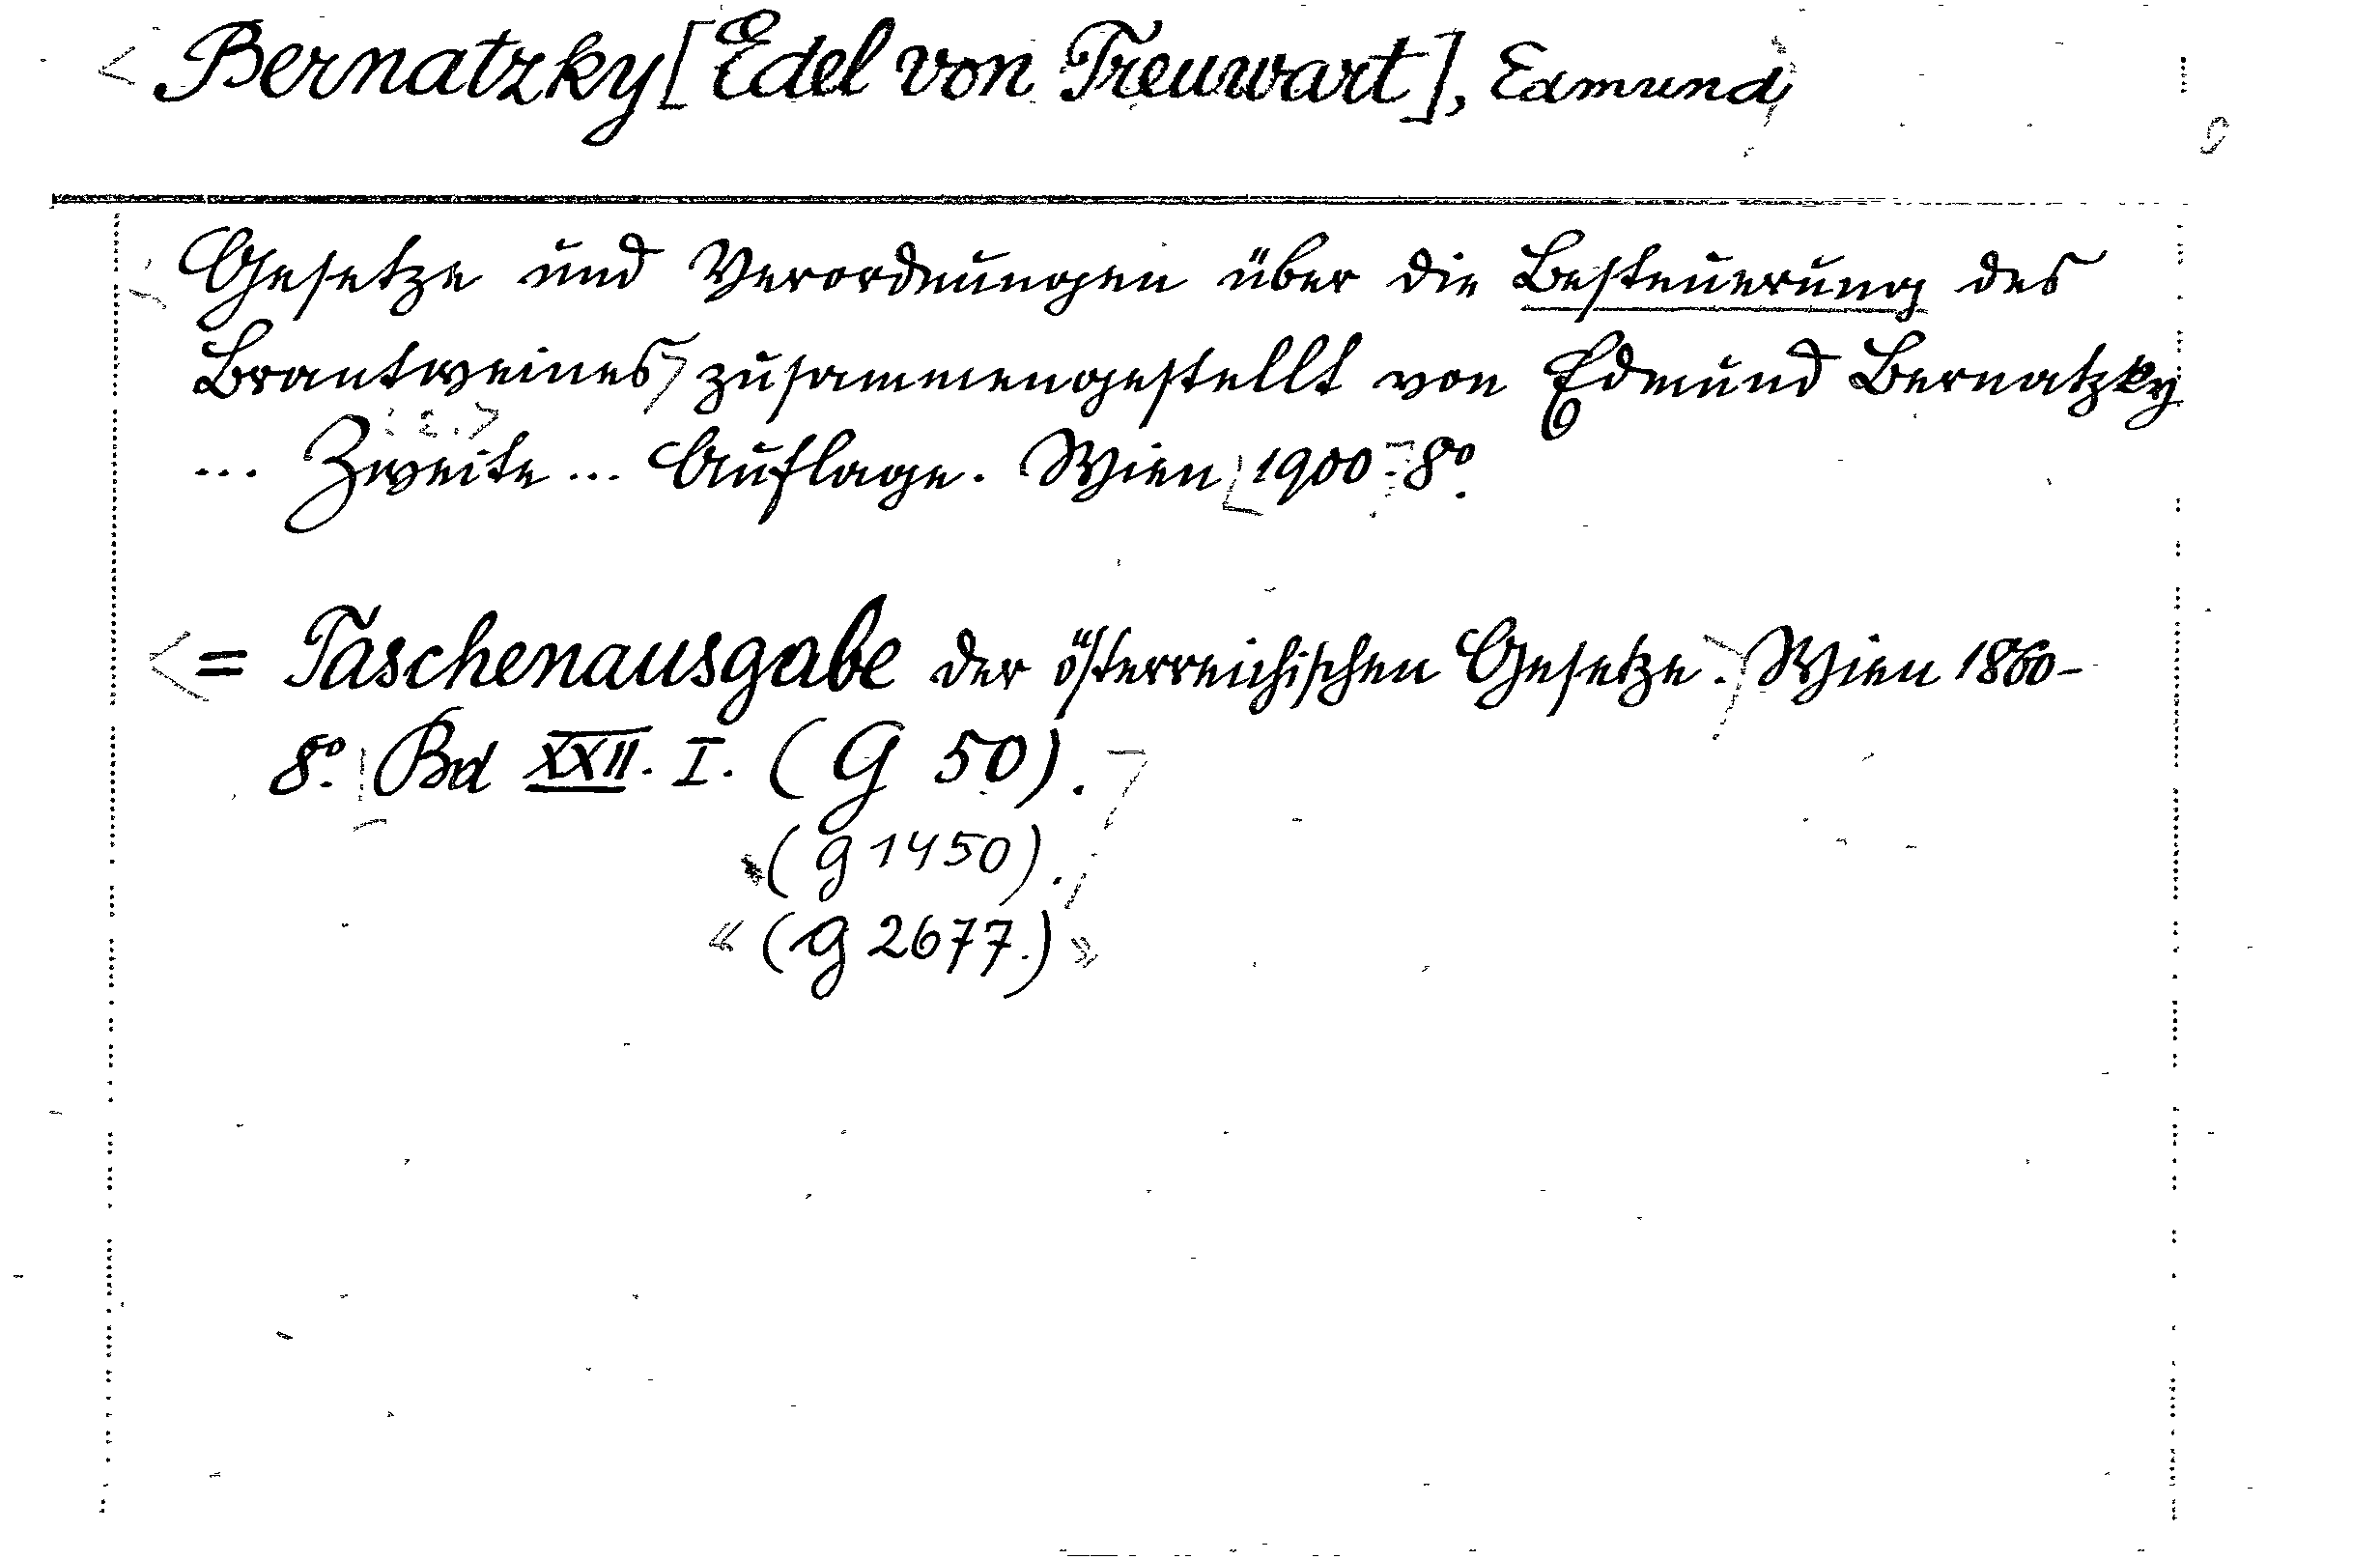 Bernatzky [Edel von Treuwart], Edmund
Gesetze und Verordnungen über die Besteuerung des
Brantweines zusammengestellt von Edmund Bernatzky
... Zweite ... Auflage. Wien 1900. 8º.
= Taschenausgabe der österreichischen Gesetze. Wien 1860-
8º. Bd XXII. I. (G 50).
(G 1450).
(G 2677.)